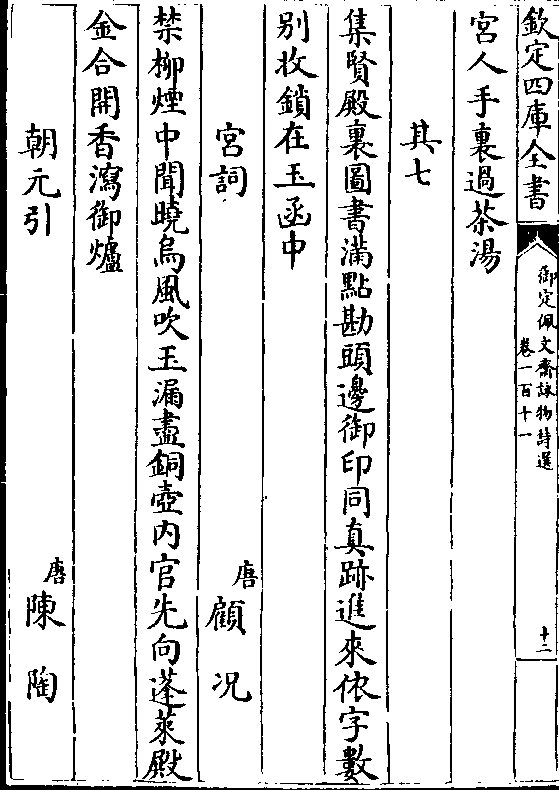 欽定四庫全書
御定佩文齋詠物詩選
卷一百十一
十二
宮人手裏過茶湯
其七
集賢殿裏圖書滿點勘頭邊御印同真跡進來依字數
别收鎖在玉函中
宮詞
唐
顧况
禁柳煙中聞曉烏風吹玉漏盡銅壺内官先向蓬萊殿
金合開香瀉御爐
朝元引
唐
陳陶